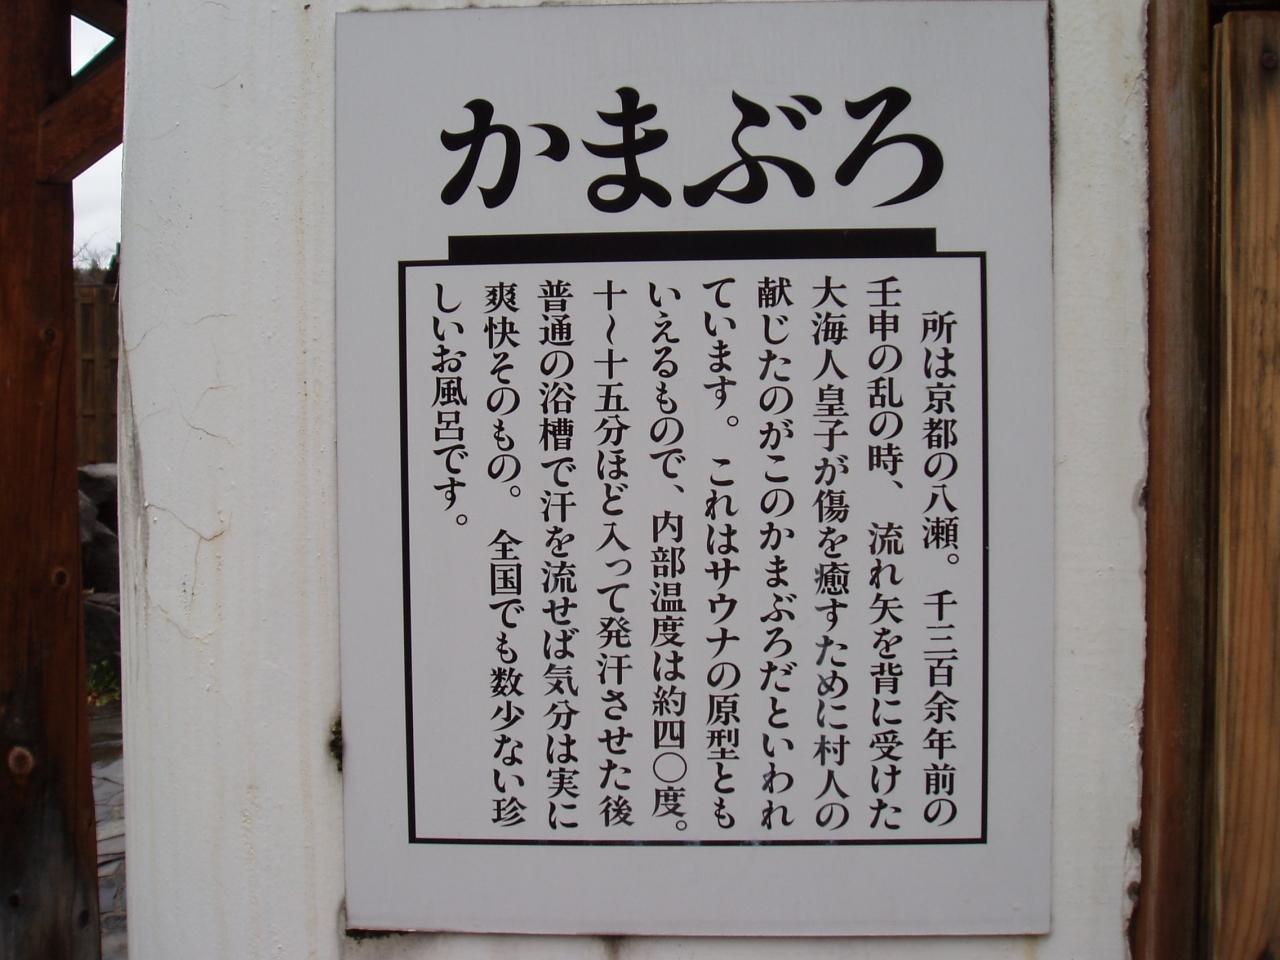 かまぶろ
所は京都の八瀬。千三百余年前の
壬申の乱の時、流れ矢を背に受けた
大海人皇子が傷を癒すために村人の
献じたのがこのかまぶろだといわれ
ています。これはサウナの原型とも
いえるもので、内部温度は約四〇度。
十～十五分ほど入って発汗させた後
普通の浴槽で汗を流せば気分は実に
爽快そのもの。全国でも数少ない珍
しいお風呂です。